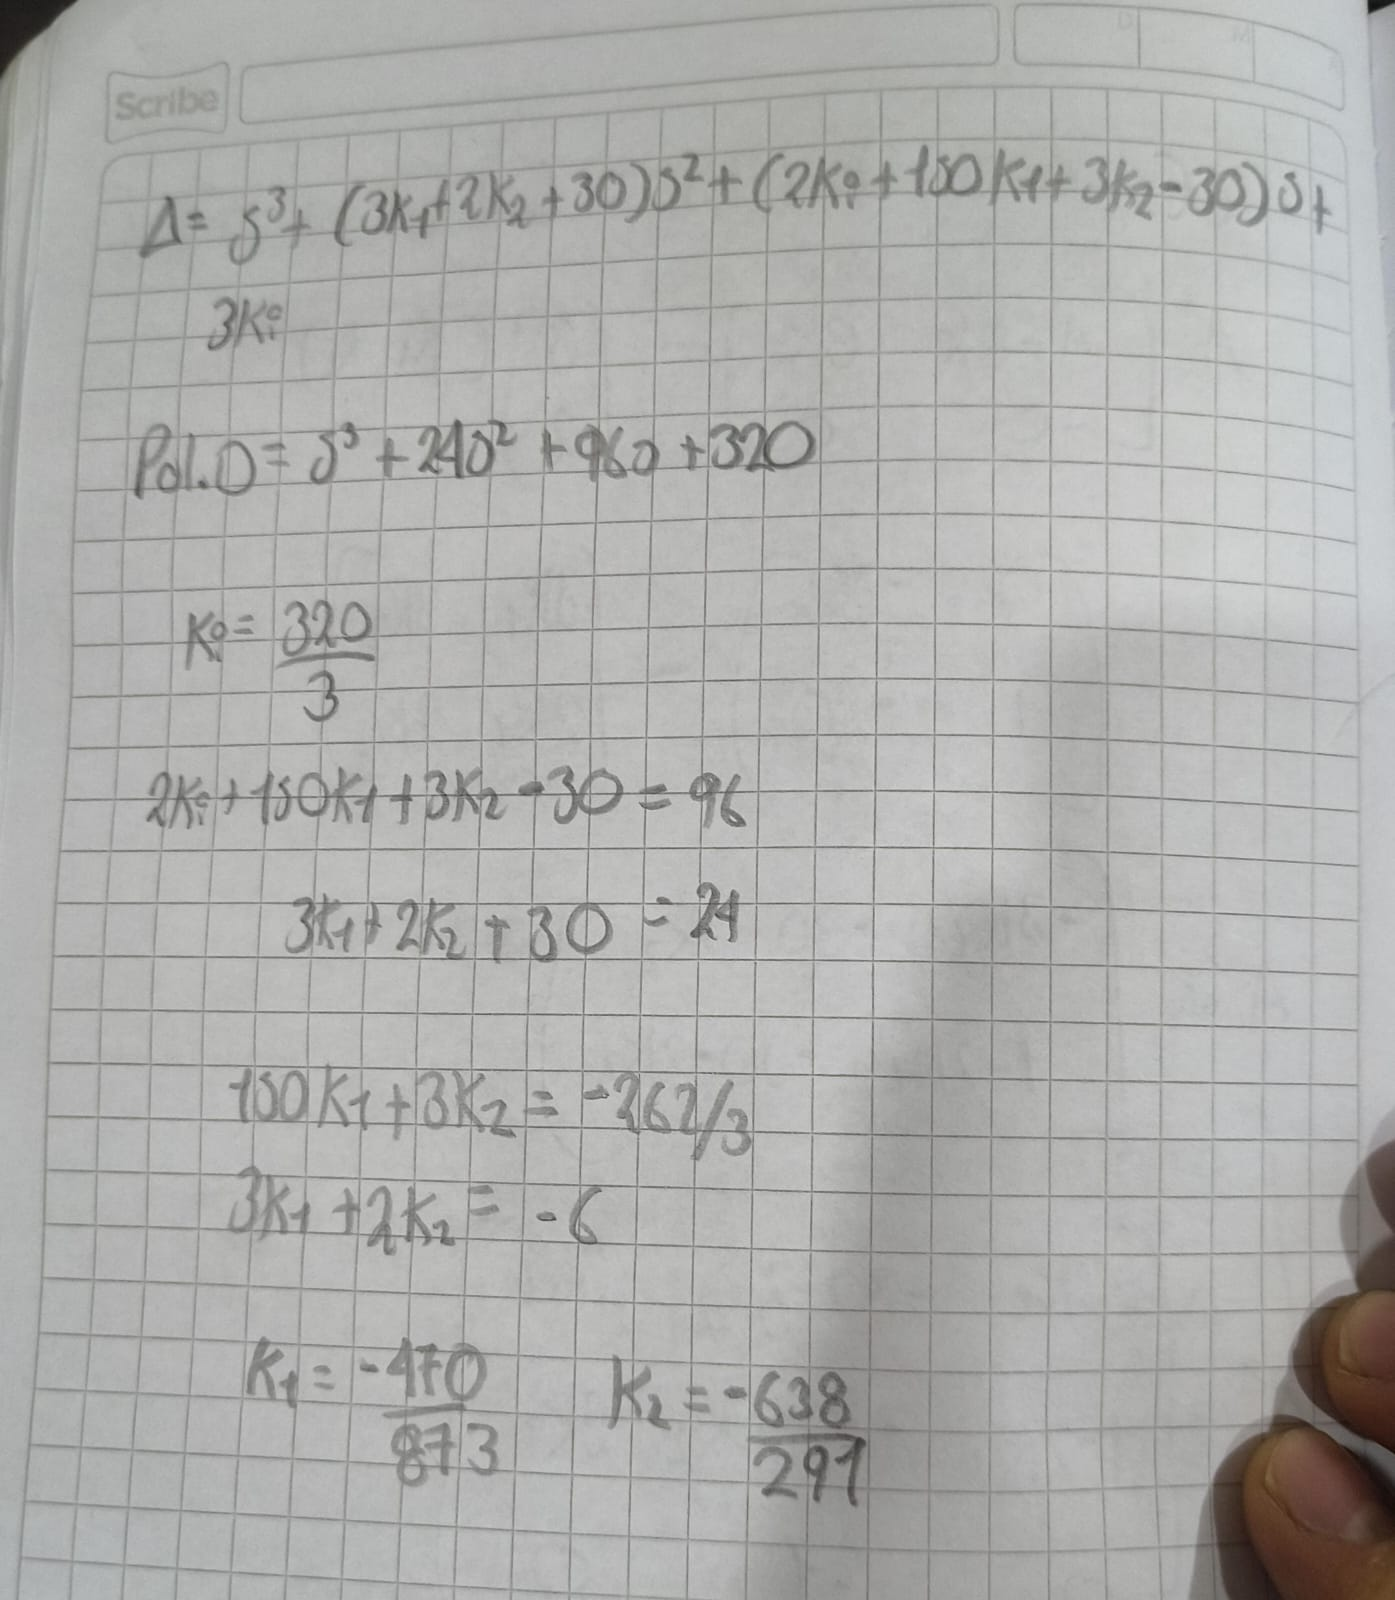 Scribe
Δ= s³+ (3K₁+2K₂+30)s²+(2Ki+150K₁+3K₂-30)s+
3Ki
Pol.D= s³+24s²+96s+320
Ki= 320/3
2Ki+150K₁+3K₂-30=96
3K₁+2K₂+30=24
150K₁+3K₂=-262/3
3K₁+2K₂=-6
K₁=-470/873 K₂=-638/291